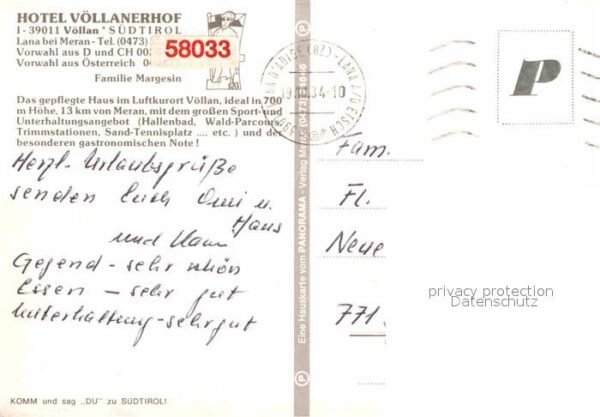 HOTEL VÖLLANERHOF
I - 39011 Völlan * SÜDTIROL
Lana bei Meran - Tel. (0473)
Vorwahl aus D und CH 00
58033
Vorwahl aus Österreich 06
Familie Margesin
Das gepflegte Haus im Luftkurort Völlan, ideal in 700
m Höhe, 13 km von Meran, mit dem großen Sport- und
Unterhaltungsangebot (Hallenbad, Wald-Parcours,
Trimmstationen, Sand-Tennisplatz .... etc.) und der
besonderen gastronomischen Note!
Herzl. Urlaubsgrüße
senden Euch Omi u.
Hans
und
Gegend - sehr schön
Essen - sehr gut
Unterhaltung - sehr gut
KOMM und sag „DU" zu SÜDTIROL!
Eine Hauskarte vom PANORAMA - Verlag
P
Fam.
Fl.
Neue
771
privacy protection
Datenschutz